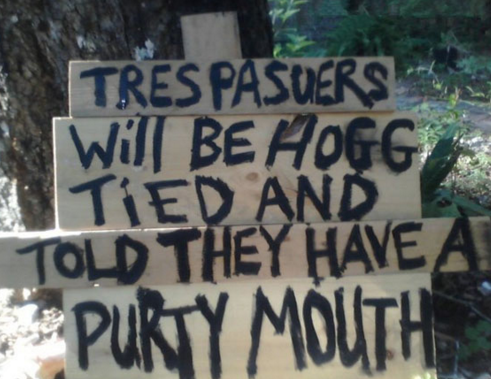 TRESPASUERS
Will BE HOGG
TiED AND
TOLD THEY HAVE A
PURTY MOUTH